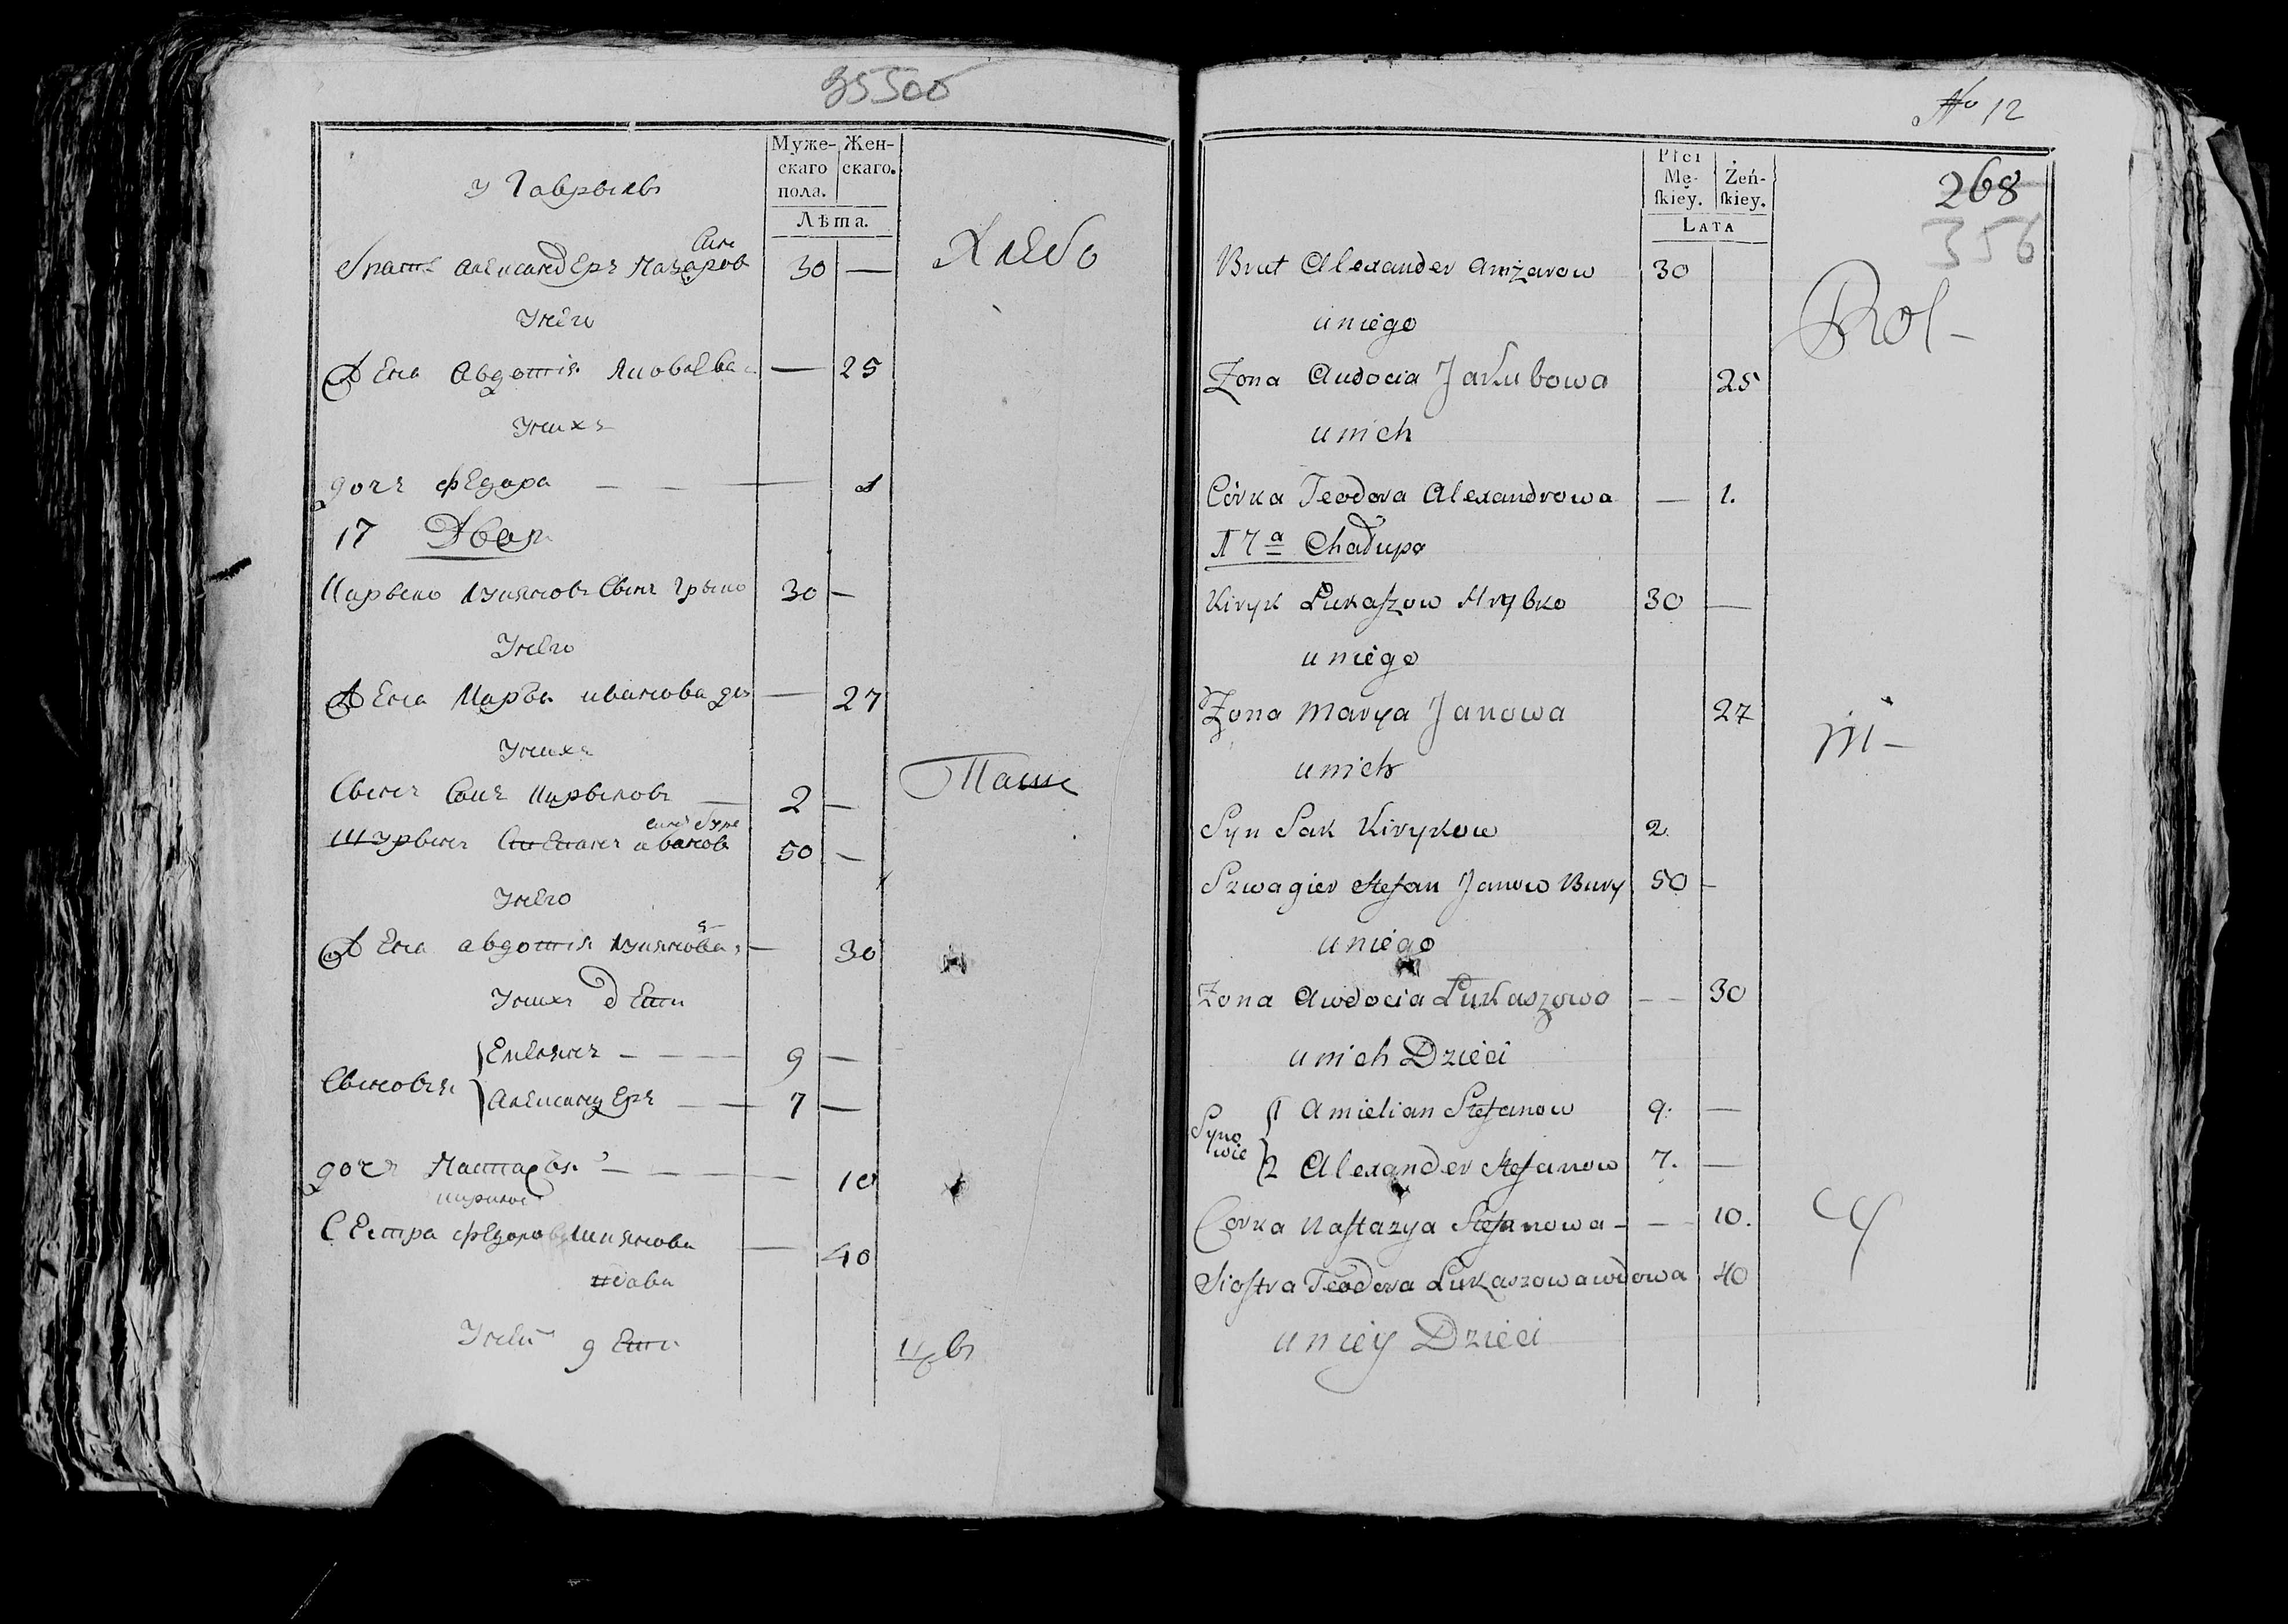 35500
Муже- Жен-
скаго скаго.
пола.
Лѣта.
у Гаврыла
братъ Александеръ Назаров Сынъ 30 —
Хлебо
Унего
Жена Авдотія Яковлева — 25
Унихъ
дочь Федора — — — 1
17 Двор
Кирыло Лукяновъ Сынъ Грыко 30 —
Унего
Жена Маря иванова до — 27
Унихъ
Сынъ Сакъ Кирыловъ — 2 —
Паше
Шурынъ Степанъ иванов сынъ Буры 50 —
Унего
Жена авдотія Лукянова — 30
Унихъ дети
Сыновья
Емелянъ — — — 9 —
Александеръ — — 7 —
дочь Настасья — — — 10
Сестра Федора Лукянова — 40
вдова
Уней дети
№ 12
Płci
Mę- Żeń-
skiey. skiey.
LATA
268
356
Brat Alexander Amżarow 30
uniego
Rol-
Żona Audocia Jakubowa 25
unich
Córka Teodora Alexandrowa — 1.
17a Chałupa
Kiryk Łukaszow Hrybko 30 —
uniego
Żona Marya Janowa 27
unich
Syn Sak Kirykow 2
Szwagier Stefan Janow Bury 50 —
uniego
Żona Awdocia Łukaszowa — — 30
unich Dzieci
Syno
wie
1 Amielian Stefanow 9. —
2 Alexander Stefanow 7. —
Corka Nastazya Stefanowa — — 10.
Siostra Teodora Łukaszowa wdowa 40
uniey Dzieci